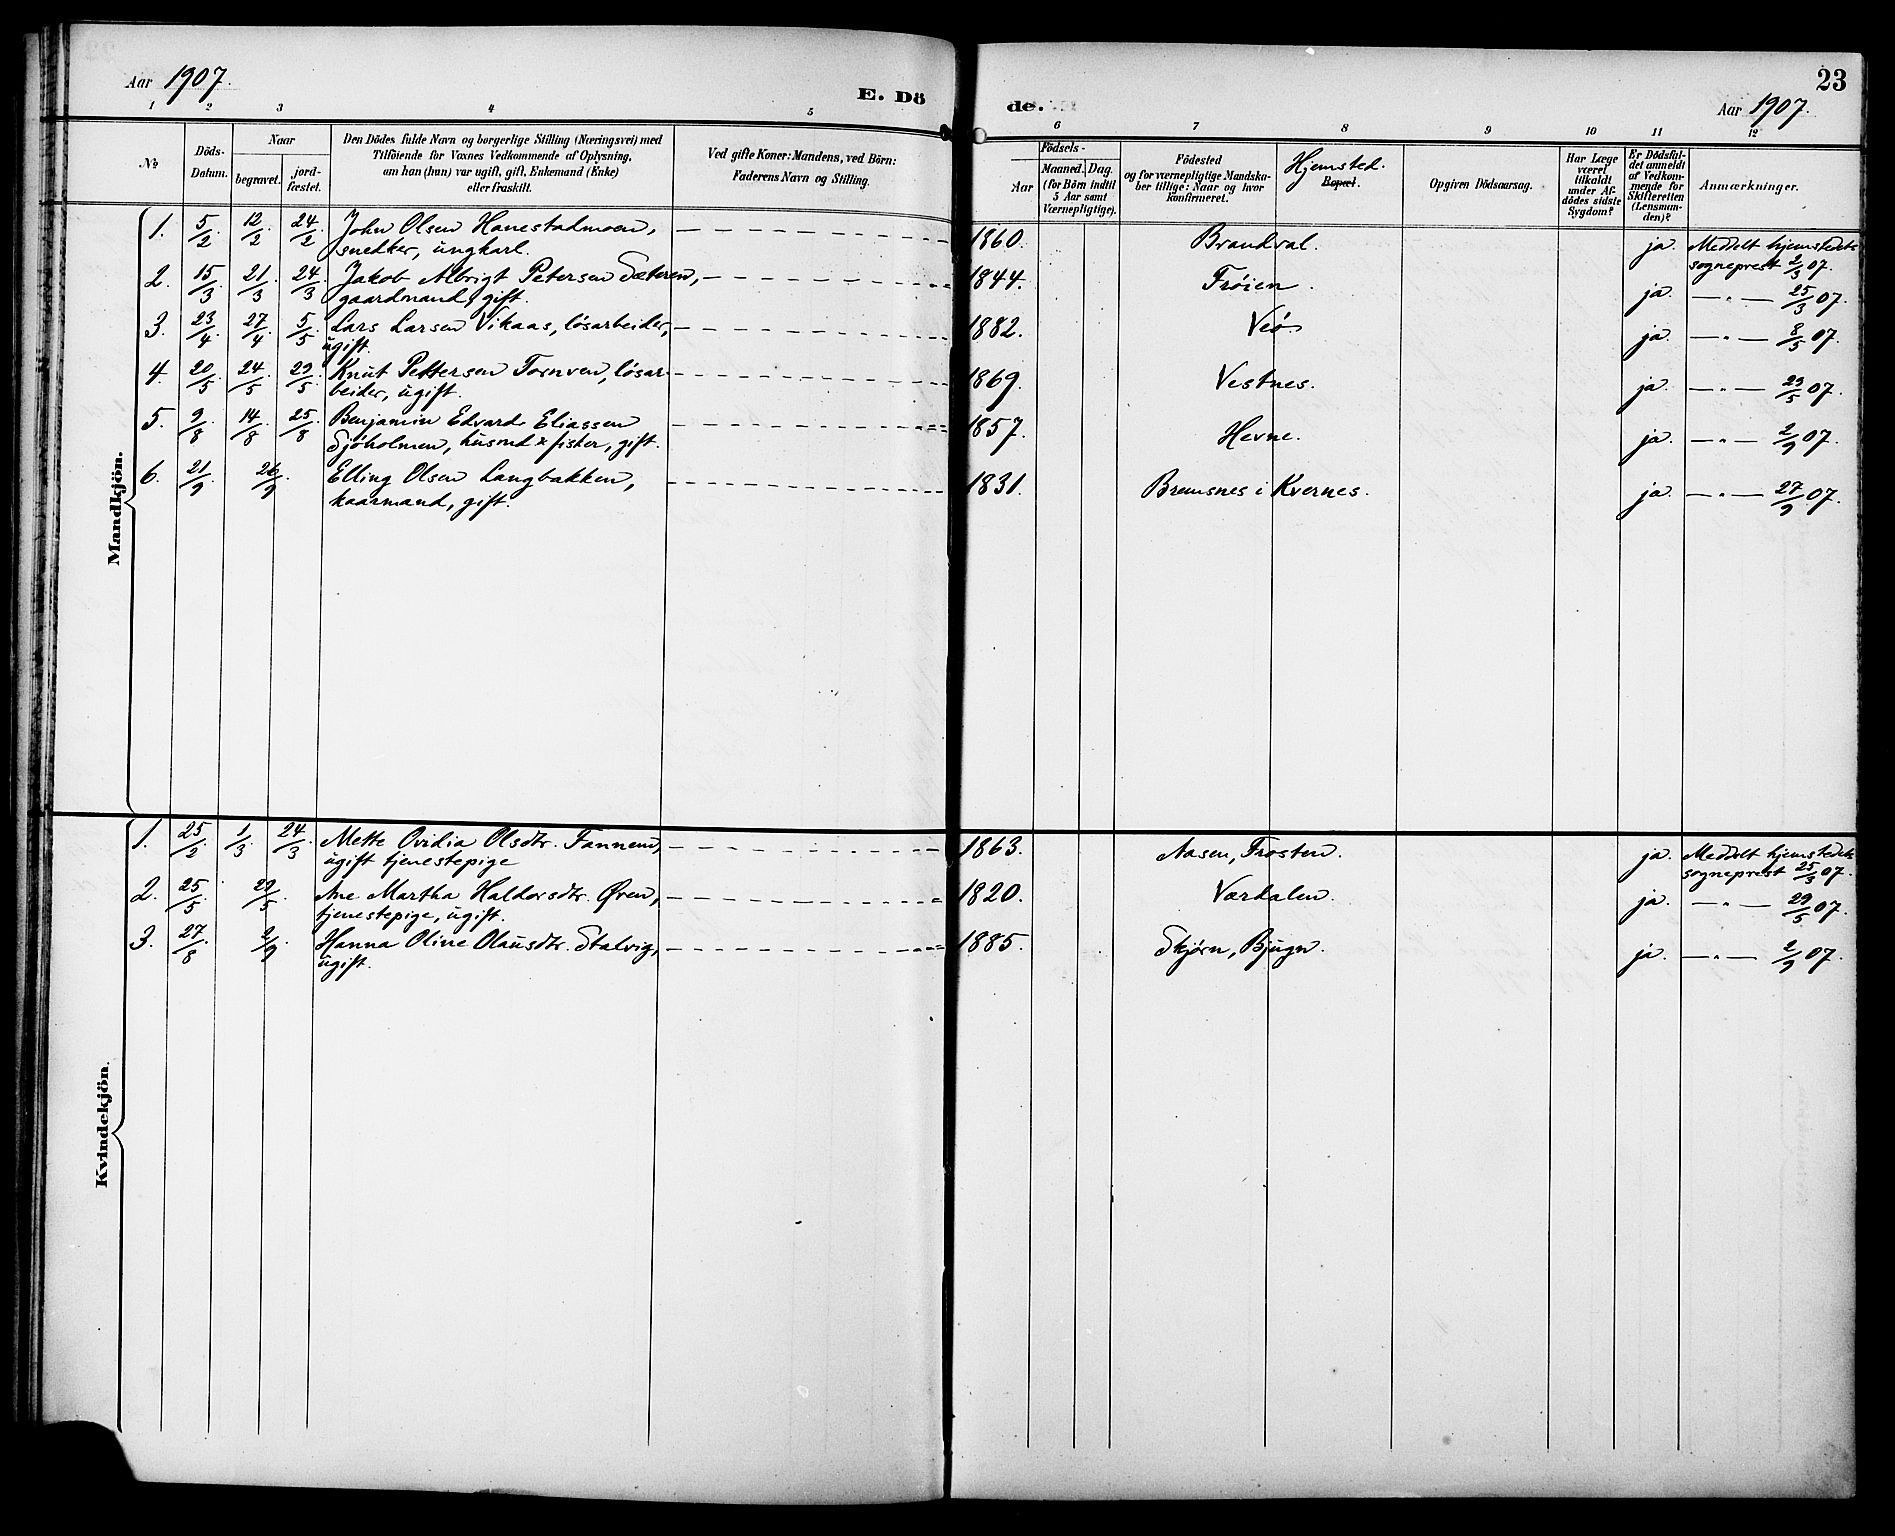 Aar 1907.
E. Dö
de.
23
Aar 1907.
1 2 3 4 5 6 7 8 9 10 11 12
No
Döds-
Datum.
Naar
begravet.
jord-
fæstet.
Den Dödes fulde Navn og borgerlige Stilling (Næringsvei) med
Tilföiende for Voxnes Vedkommende af Oplysning,
om han (hun) var ugift, gift, Enkemand (Enke)
eller fraskilt.
Ved gifte Koner: Mandens, ved Börn:
Faderens Navn og Stilling.
Födsels-
Aar
Maaned. Dag.
(for Börn indtil
5 Aar samt
Værnepligtige).
Födested
og for værnepligtige Mandska-
ber tillige: Naar og hvor
konfirmeret.
Hjemsted.
Bopæl.
Opgiven Dödsaarsag.
Har Læge
været
tilkaldt
under Af-
dödes sidste
Sygdom?
Er Dödsfal-
det anmeldt
af Vedkom-
mende for
Skifteretten
(Lensman-
den)?
Anmærkninger.
Mandkjön.
1. 5/2 12/2 24/2 John Olsen Hanestadmoen, 1860. Brandval. ja. Meddelt hjemstedets
snedker, ungkarl. sogneprest 2/3 07.
2. 15/3 21/3 24/3 Jakob Albrigt Petersen Sæteren, 1844. Frøien. ja. — " — 25/3 07.
gaardmand, gift.
3. 23/4 27/4 5/5 Lars Larsen Vikaas, lösarbeider, 1882. Veö. ja. — " — 8/5 07.
ugift.
4. 20/5 24/5 29/5 Knut Pettersen Tornven, lösar- 1869. Vestnes. ja. — " — 29/5 07.
beider, ugift.
5. 9/8 14/8 25/8 Benjamin Edvard Eliassen 1857. Hevne. ja. — " — 2/9 07.
Sjöholmen, husmd & fisker, gift.
6. 21/9 26/9 Elling Olsen Langbakken, 1831. Bremsnes i Kvernes. ja. — " — 27/9 07.
kaarmand, gift.
Kvindekjön.
1. 25/2 1/3 24/3 Mette Ovidia Olsdtr. Fannem, 1863. Aasen, Frosten. ja. Meddelt hjemstedets
ugift tjenestepige sogneprest 25/3 07.
2. 25/5 29/5 Ane Martha Haldorsdtr. Øren, 1820. Værdalen. ja. — " — 29/5 07.
tjenestepige, ugift.
3. 27/8 2/9 Hanna Oline Olausdtr. Stalvig, 1885. Skjørn, Bjugn. ja. — " — 2/9 07.
ugift.